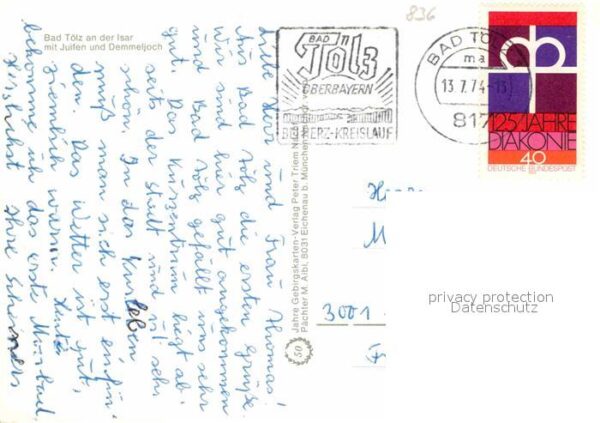 Bad Tölz an der Isar
mit Juifen und Demmeljoch
836
BAD
Tölz
OBERBAYERN
HERZ-KREISLAUF
BAD TÖLZ
ma
13.7.74-13
817
125 JAHRE
DIAKONIE
40
DEUTSCHE BUNDESPOST
Liebe Herr und Frau Thomas!
Aus Bad Tölz die ersten Grüße.
Wir sind hier gut angekommen
und Bad Tölz gefällt uns sehr
gut. Das Kurzentrum liegt ab-
seits der Stadt und ist sehr
schön. In das Kurleben
muß man sich erst einfin-
den. Das Wetter ist gut,
ziemlich warm. Heute
bekomme ich das erste Moorbad.
Herzlichst Ihre
50 Jahre Gebirgskarten-Verlag Peter Triem
Pächter M. Aibl, 8031 Eichenau b. München
3001
privacy protection
Datenschutz